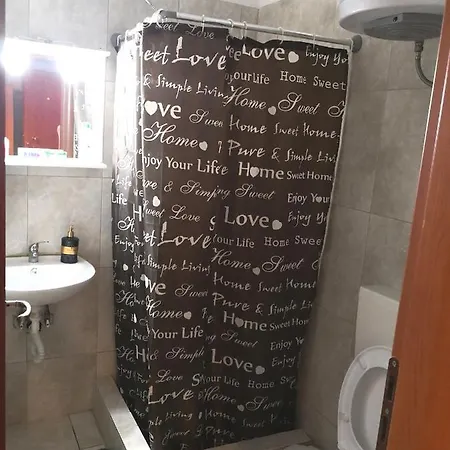 Sweet Love
Enjoy Your
Love
your life Home Sweet
& Simple Living
Home Sweet
Love Sweet
Home
Home Sweet Home
Pure & Simple
Enjoy Your Life
Home Sweet Home
Pure & Simp
Enjoy Your
Sweet Love
Love
Enjoy
Sweet Love
Your life Home Sweet
Simple Living
Home Sweet
Love Sweet
Home
Home Sweet
Pure & Simple
Enjoy Your Life
Home
& Simple
Love
Enjoy
Love
Home Sweet
Simple Living
Home